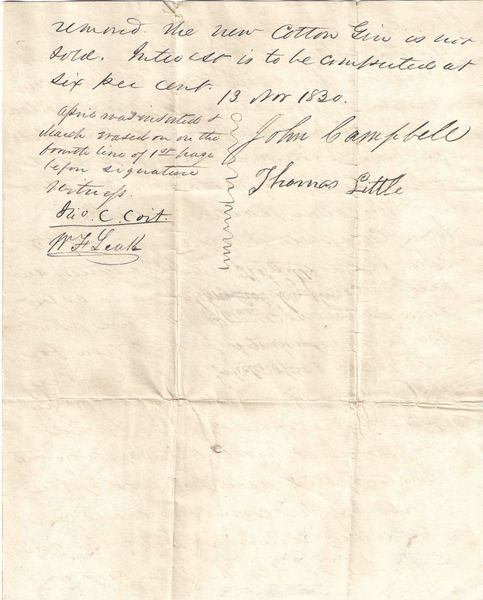 removed. The new Cotton Gin is not
sold. Interest is to be computed at
six per cent.
13 Nov 1830.
April was inserted &
March erased on the
fourth line of 1st page
before signature
Witness.
Jno. C. Coit.
W F Leak
John Campbell
Thomas Little